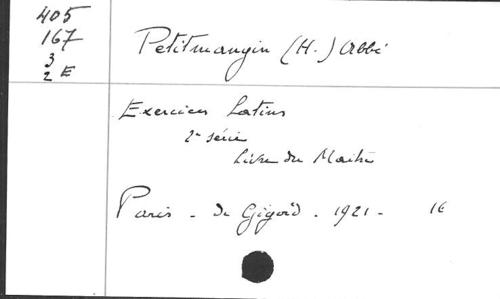 405
167
3
2 E
Petitmangin (H.) Abbé
Exercices Latins
2e série
Livre du Maître
Paris - de Gigord - 1921 - 16